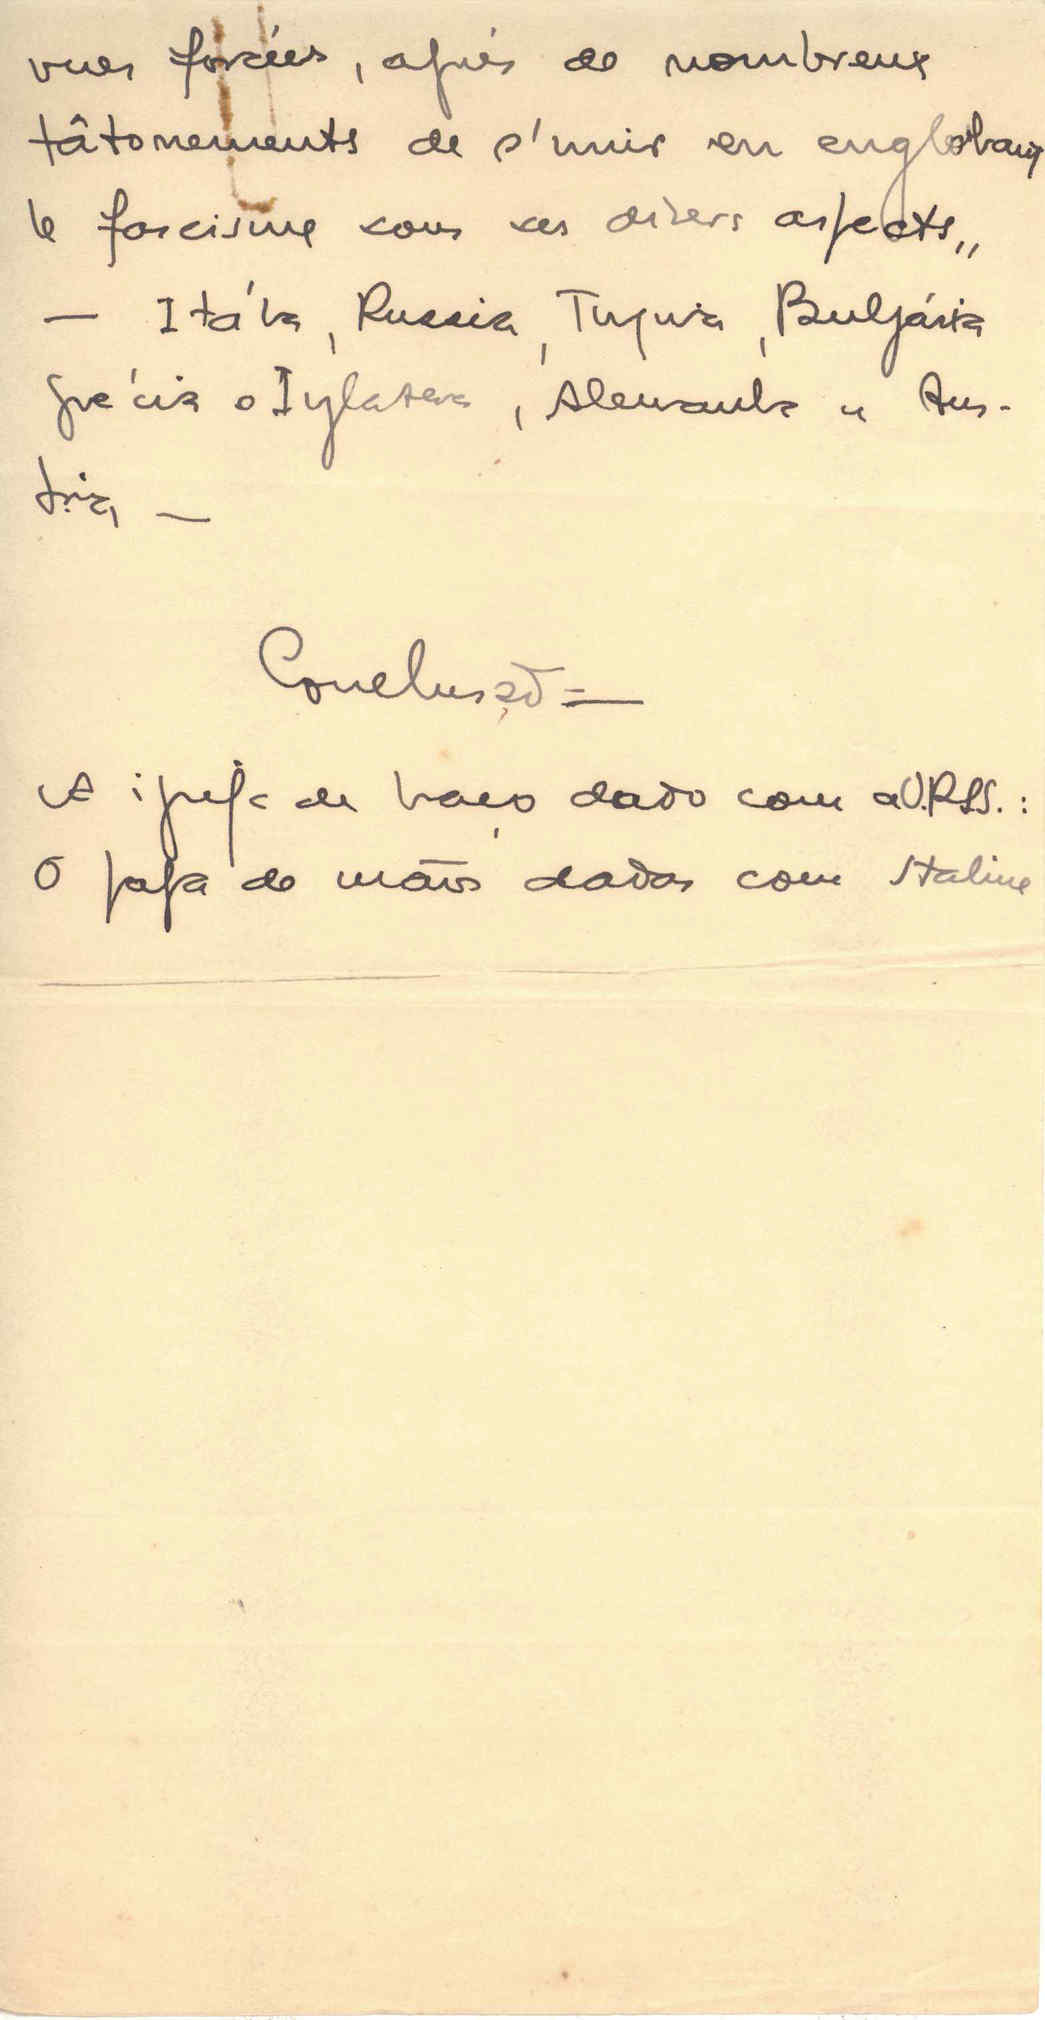 vues forcées, après de nombreux
tâtonements de s'unir en englobant
le fascisme sous ses divers aspects,,
— Itália, Russia, Turquia, Bulgária
Grécia o Inglaterra, Alemanha u Aus-
tria, —
Conclusão =—
A igreja de braço dado com a U.R.S.S. :
O papa de mãos dadas com Staline